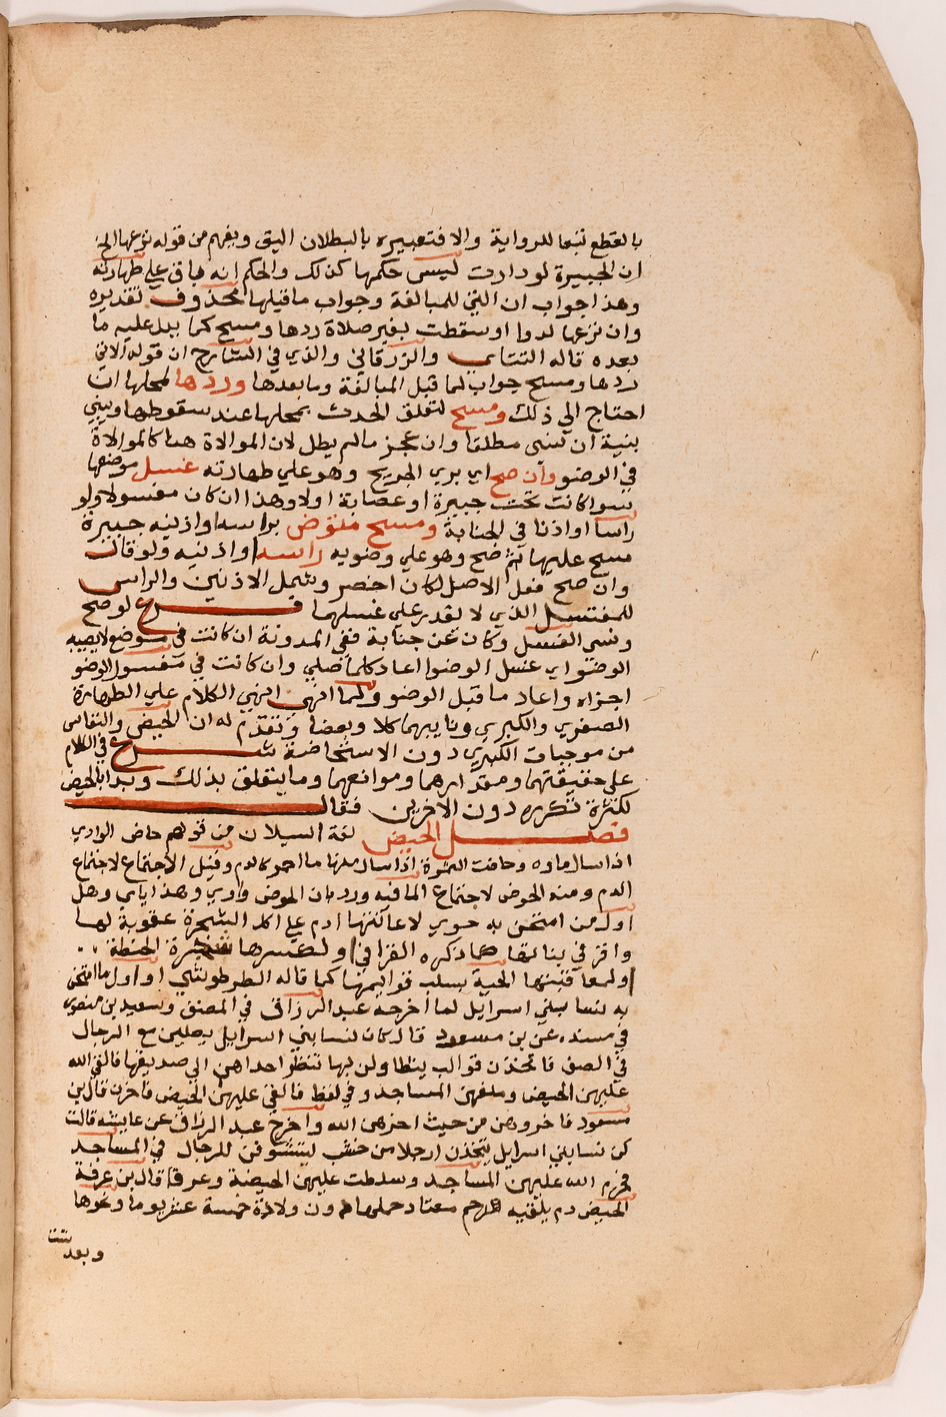 بالقطع تبعا للرواية والا فتعبيره بالبطلان اليق ويفهم من قوله نزعها الخ
ان الجبيرة لو دارت ليس حكمها كذلك والحكم انه باق على طهارته
وهذا جواب ان التي للمبالغة وجواب ما قبلها محذوف تقديره
وان نزعها لدوا او سقطت بغير صلاة ردها ومسح كما يدل عليه ما
بعده قاله التتاي والزرقاني والذي في الشارح ان قوله الاتي
ردها ومسح جواب لما قبل المبالغة وما بعدها وردها لمحلها ان
احتاج الي ذلك ومسح لتعلق الحدث بمحلها عند سقوطها ويبني
بنية ان نسى مطلقا وان عجز مالم يطل لان الموالاة هنا كالموالاة
في الوضو وان صح اي بري الجريح وهو علي طهارته غسل موضعها
سوا كانت تحت جبيرة او عصابة اولا وهذا ان كان مغسولا ولو
راسا او اذنا في الجنابة ومسح متوض براسه او اذنيه جبيرة
مسح عليها ثم صح وهو علي وضويه راسه او اذنيه ولو قال
وان صح فعل الاصل لكان اخصر ويشمل الاذنين والراس
للمغتسل الذي لا يقدر على غسلها فرع لو صح
ونسى الغسل وكان عن جنابة ففي المدونة ان كانت في موضع لا يصيبه
الوضو اي غسل الوضوا اعاد كلما صلي وان كانت في مغسول الوضو
اجزاه واعاد ما قبل الوضو ولما انهى انهي الكلام علي الطهارة
الصغري والكبري ونايبهما كلا وبعضا وتقدم له ان الحيض والنفاس
من موجبات الكبري دون الاستحاضة شرع في الكلام
على حقيقتهما ومقدارهما وموانعهما وما يتعلق بذلك وبدا بالحيض
لكثرة تكرره دون الاخرين فقال
فصل الحيض لغة السيلان من قولهم حاض الوادي
اذا سال ماوه وحاضت السمرة اذا سال منها ما احمر كالدم وقيل الاجتماع لاجتماع
الدم ومنه الحوض لاجتماع الما فيه ورد بان الحوض واوي وهذا ياي وهل
اول من امتحن به حوي لاعانتها ادم علي اكل الشجرة عقوبة لها
واقر في بناتها هما ذكره القرافي او لكسرها شجرة الحنطة
بسلب قوايمها كما قاله الطرطوشي او اول ما امتحن
به نسا بني اسرايل لما اخرجه عبد الرزاق في المصنف وسعيد بن منصور
في مسنده عن بن مسعود قال كان نسا بني اسرايل يصلين مع الرجال
في الصف فاتخذن قوالب يتطاولن بها تنظر احداهن الي صديقها فالقي الله
عليهن الحيض ومنعهن المساجد وفي لفظ فالقي عليهن الحيض فاخرن قال بن
مسعود فاخروهن من حيث اخرهن الله واخرج عبد الرزاق عن عايشة قالت
كن نسا بني اسرايل يتخذن ارجلا من خشب ليتشوفن للرجال في المساجد
فحرم الله عليهن المساجد وسلطت عليهن الحيضة وعرفه قال بن عرفة
الحيض دم يلقيه رحم معتاد حملها دون ولادة خمسة عشر يوما ونحوها
وبعد